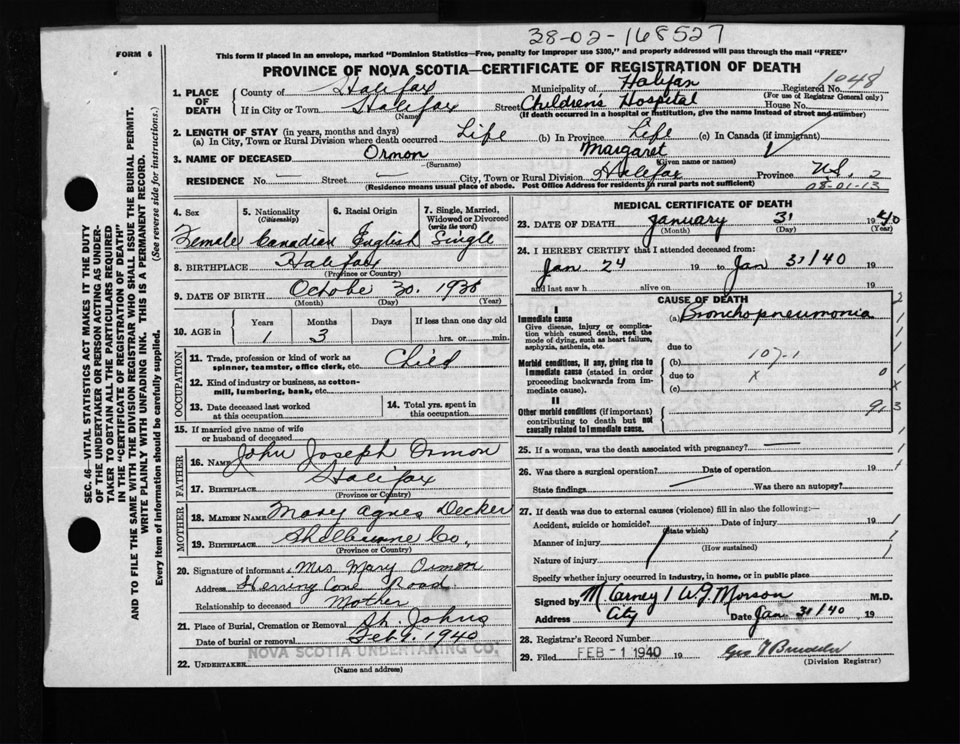 38-02-168527
FORM 6
This form if placed in an envelope, marked "Dominion Statistics—Free, penalty for improper use $300," and properly addressed will pass through the mail "FREE"
PROVINCE OF NOVA SCOTIA—CERTIFICATE OF REGISTRATION OF DEATH
1. PLACE OF DEATH
County of Halifax Municipality of Halifax Registered No. 1048
(For use of Registrar General only)
If in City or Town Halifax Street Children's Hospital House No.
(Name) (If death occurred in a hospital or institution, give its name instead of street and number)
2. LENGTH OF STAY (in years, months and days)
(a) In City, Town or Rural Division where death occurred Life (b) In Province Life (c) In Canada (if immigrant)
3. NAME OF DECEASED Ormon Margaret
(Surname) (Given name or names)
RESIDENCE No. — Street — City, Town or Rural Division Halifax Province N.S. 2
(Residence means usual place of abode. Post Office Address for residents in rural parts not sufficient) 08-01-13
4. Sex Female
5. Nationality (Citizenship) Canadian
6. Racial Origin English
7. Single, Married, Widowed or Divorced (write the word) Single
8. BIRTHPLACE Halifax
(Province or Country)
9. DATE OF BIRTH Octobe 30. 1938
(Month) (Day) (Year)
10. AGE in Years Months Days If less than one day old
1 3 hrs. or min.
OCCUPATION
11. Trade, profession or kind of work as spinner, teamster, office clerk, etc. Child
12. Kind of industry or business, as cotton-mill, lumbering, bank, etc.
13. Date deceased last worked at this occupation
14. Total yrs. spent in this occupation
15. If married give name of wife or husband of deceased
FATHER
16. NAME John Joseph Ormon
17. BIRTHPLACE Halifax
(Province or Country)
MOTHER
18. MAIDEN NAME Mary Agnes Decker
19. BIRTHPLACE Shelburne Co,
(Province or Country)
20. Signature of informant Mrs Mary Ormon
Address Herring Cove Road
Relationship to deceased Mother
21. Place of Burial, Cremation or Removal St. Johns
Date of burial or removal Feb 1940
22. UNDERTAKER NOVA SCOTIA UNDERTAKING CO.
(Name and address)
MEDICAL CERTIFICATE OF DEATH
23. DATE OF DEATH January 31 1940
(Month) (Day) (Year)
24. I HEREBY CERTIFY that I attended deceased from:
Jan 24 19 to Jan 31/40 19
and last saw h alive on 19
CAUSE OF DEATH
I
Immediate cause (a) Bronchopneumonia
Give disease, injury or complication which caused death, not the mode of dying, such as heart failure, asphyxia, asthenia, etc.
due to
Morbid conditions, if any, giving rise to immediate cause (stated in order proceeding backwards from immediate cause).
(b) 107-1
due to x
(c)
II
Other morbid conditions (if important) contributing to death but not causally related to immediate cause.
25. If a woman, was the death associated with pregnancy? —
26. Was there a surgical operation? Date of operation 19
State findings Was there an autopsy?
27. If death was due to external causes (violence) fill in also the following:—
Accident, suicide or homicide? Date of injury 19
(State which)
Manner of injury
(How sustained)
Nature of injury
Specify whether injury occurred in industry, in home, or in public place
Signed by M. Carney / A.J. Morson M.D.
Address City Date Jan 31/40 19
28. Registrar's Record Number
29. Filed FEB - 1 1940 19
(Division Registrar)
SEC. 46—VITAL STATISTICS ACT MAKES IT THE DUTY OF THE UNDERTAKER OR PERSON ACTING AS UNDERTAKER TO OBTAIN ALL THE PARTICULARS REQUIRED IN THE "CERTIFICATE OF REGISTRATION OF DEATH" AND TO FILE THE SAME WITH THE DIVISION REGISTRAR WHO SHALL ISSUE THE BURIAL PERMIT.
WRITE PLAINLY WITH UNFADING INK. THIS IS A PERMANENT RECORD.
Every item of information should be carefully supplied. (See reverse side for instructions.)